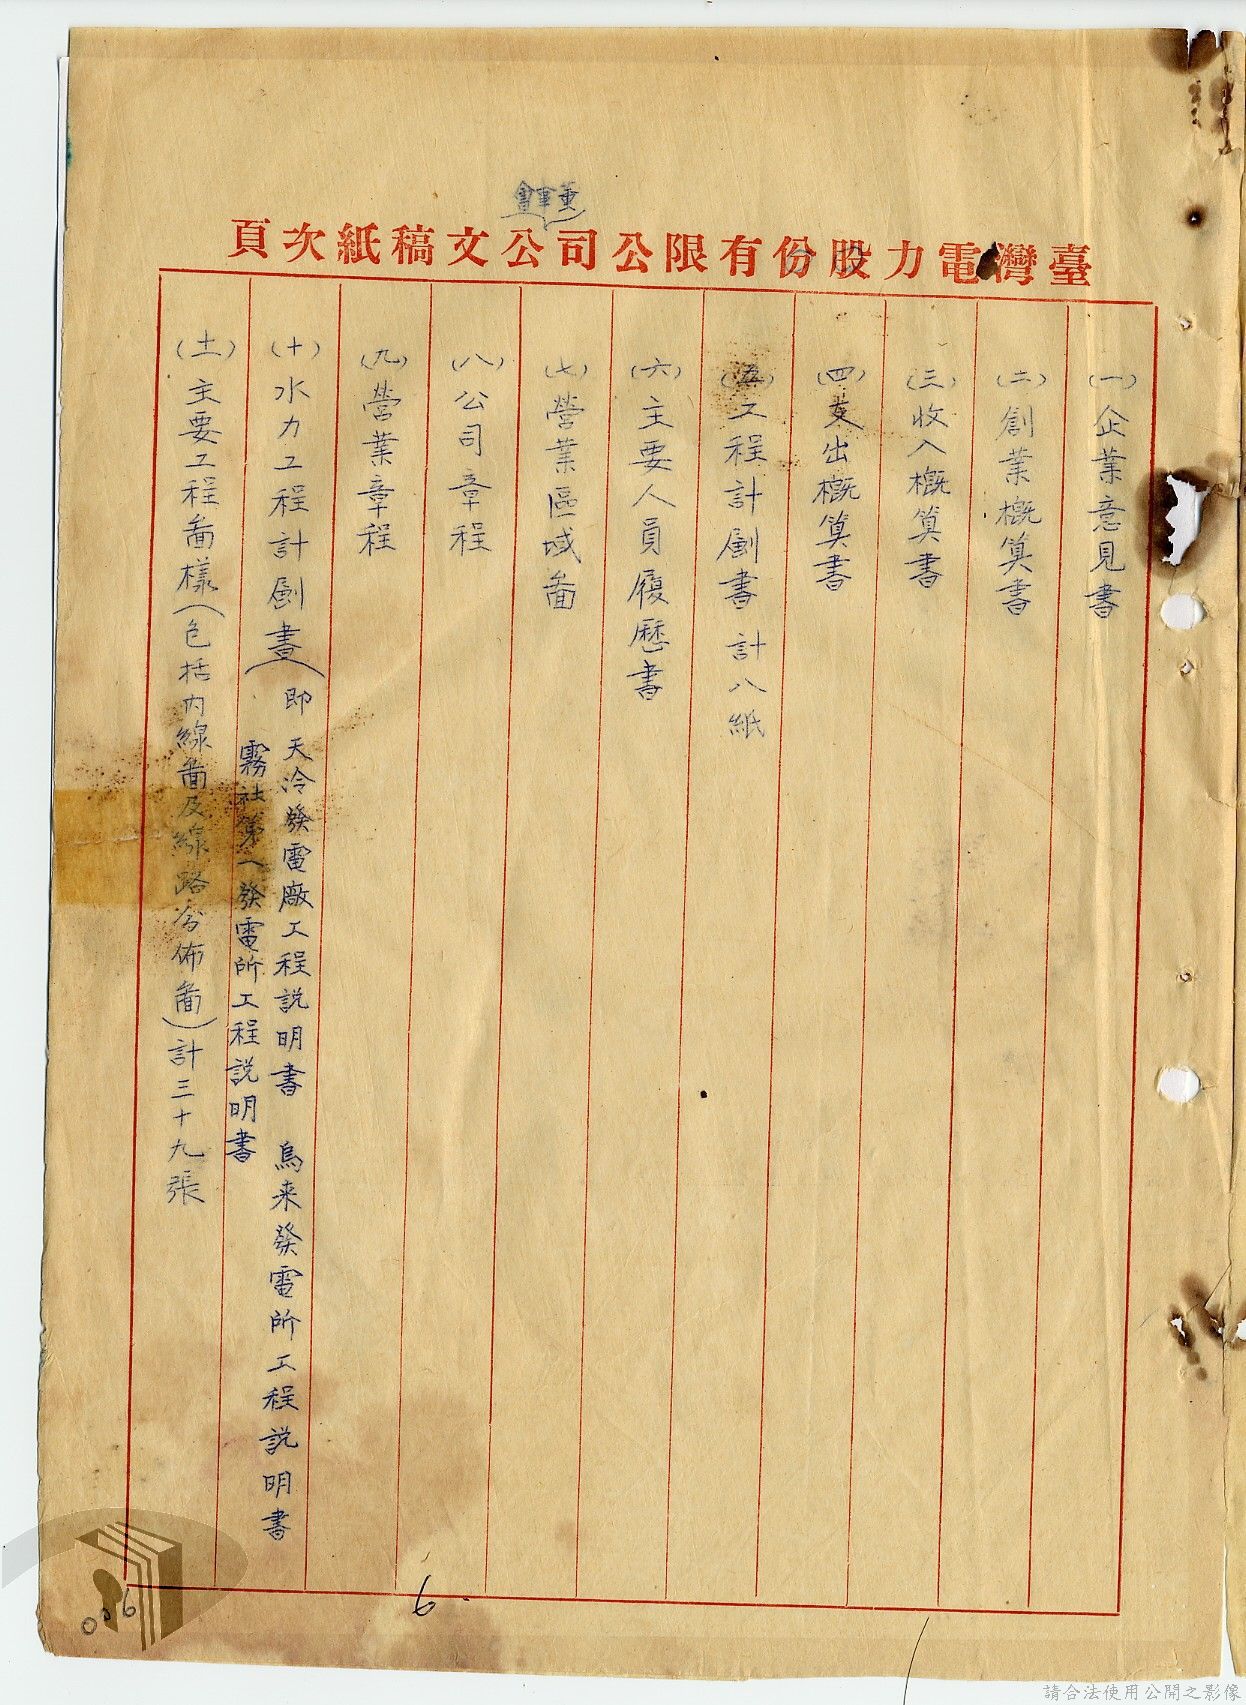 臺灣電力股份有限公司公文稿紙次頁
董事會
(一)企業意見書
(二)創業概算書
(三)收入概算書
(四)支出概算書
(五)工程計劃書計八紙
(六)主要人員履歷書
(七)營業區域啚
(八)公司章程
(九)營業章程
(十)水力工程計劃書(即 天冷發電廠工程説明書 烏来發電所工程説明書
霧社第一發電所工程説明書
(土)主要工程啚様(包括内線啚及線路分佈啚)計三十九張
6
006
請合法使用公開之影像